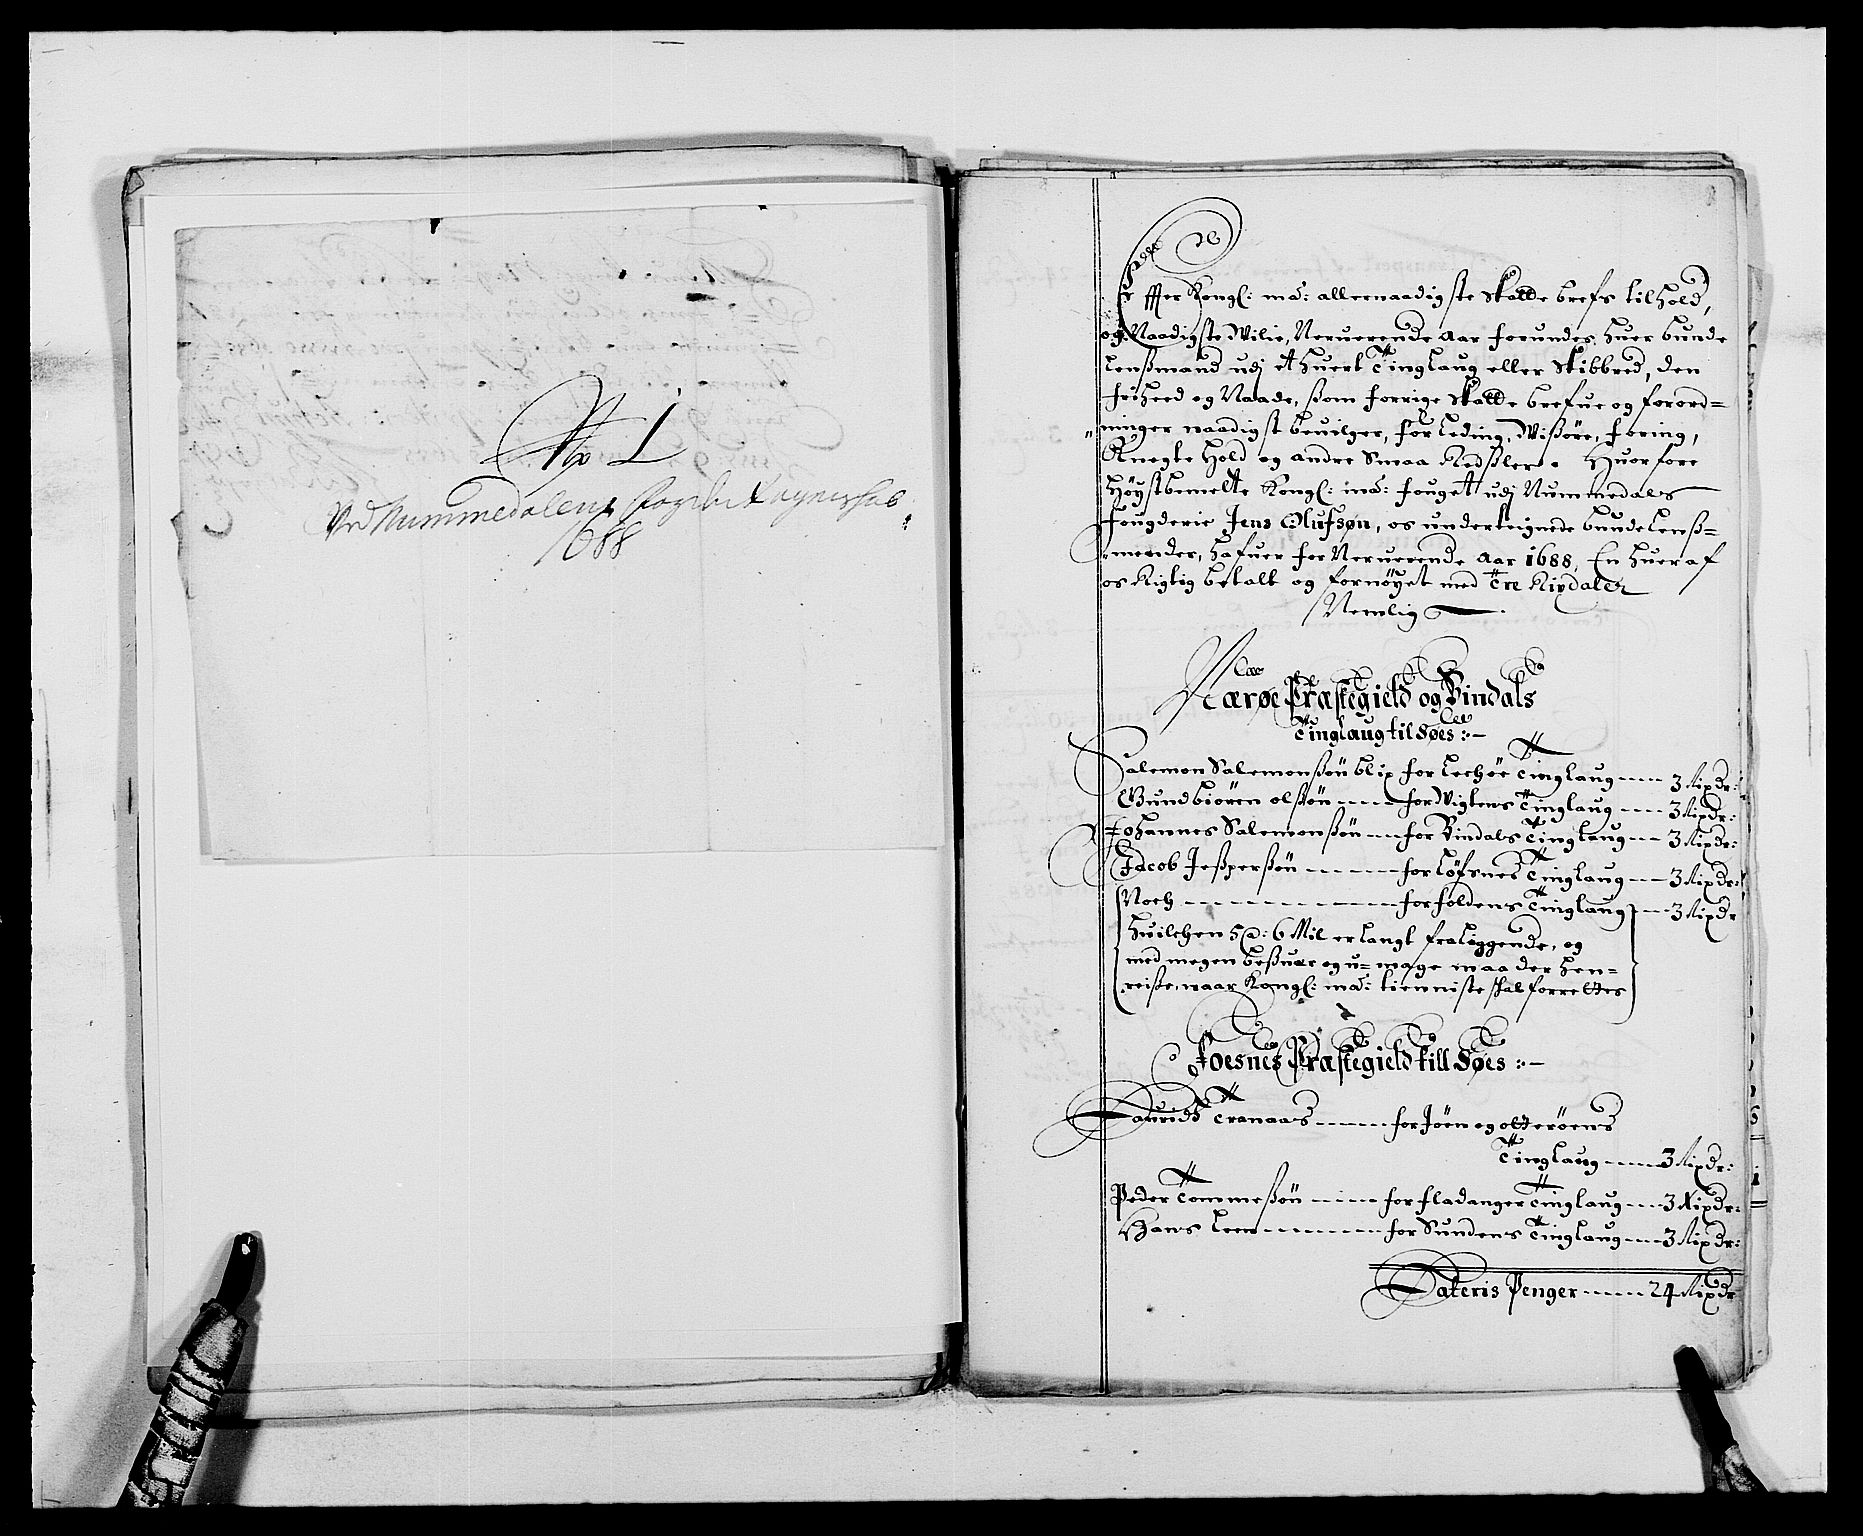 No 1
Ved Nummedalens fogderi Regenschab
1688
Effter Kongl: may: allernaadigste Skatte brefs tilhold,
og Naadigste Wilie, Neruerende Aar forundes huer bunde
Lensmand udj et huert Tinglaug eller Skibbred, den
friheed og Naade, ßom forrige Skatte brefue og forord=
ninger naadigst beuilger, for Leding, Wißøre, foring,
Knegte hold og andre Smaa Redßler. Huorfore
høystbemelte Kongl: may: fouget udj Nummedals
fougderie Jens Olufsøn, os underteignede bundelenß=
mender, hafuer for Neruerende Aar 1688, En huer af
os Rigtig betalt og fornøyet med Tre Rixdaler
Nemlig
Nærøe Præstegield og Bindals
Tinglaug til Søes :-
Salemon Salemonßøn blix for Lechöe Tinglaug ---- 3 Rixdr:
Gundbiören olßøn ---- for Wigtens Tinglaug ---- 3 Rixdr:
Johannes Salemonßøn ---- for Bindals Tinglaug --- 3 Rixdr:
Jacob Jeßperßøn ------ for Løfsnes Tinglaug --- 3 Rixdr:
Noch ------------ for foldens Tinglaug --- 3 Rixdr
huilchen 5 a: 6 Mil er langt fraliggende, og
med megen beßuær og u=mage maa der hen=
reiße, naar Kongl: may: tienniste skal forrettes
Foesnes Præstegield till Søes :-
Lauridtz Tranaas ------ for Jöen og otterøens
Tinglaug ----- 3 Rixdr:
Peder Tommeßøn ----- for fladanger Tinglaug --- 3 Rixdr:
Hans Leem -------- for Sundens Tinglaug --- 3 Rixdr:
Lateris Penger ------ 24 Rixdr